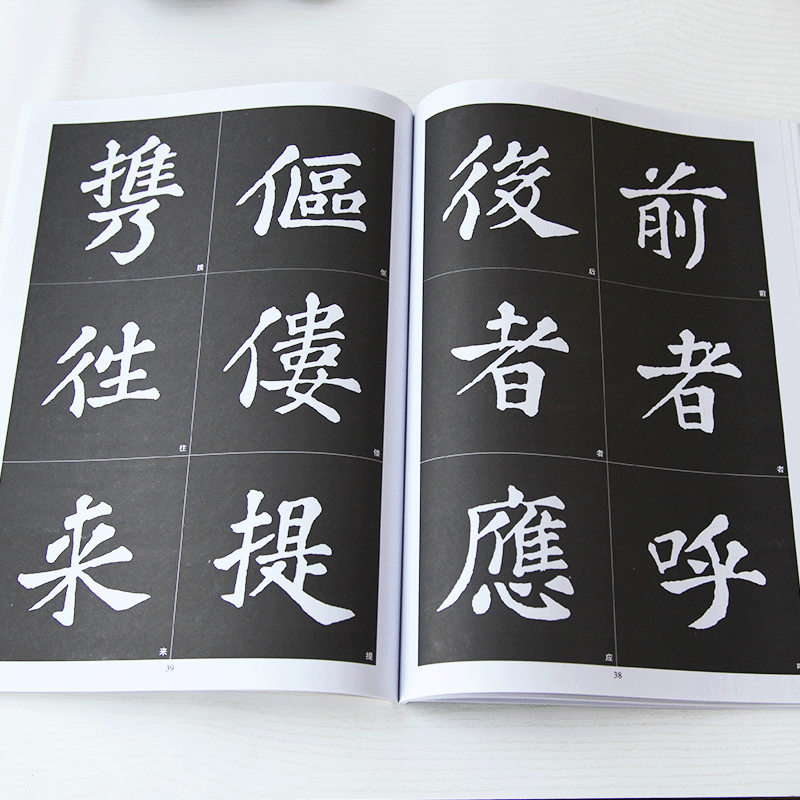 前者呼
後者應
傴僂提
携徃来
前
者
后
者
应
38
伛
偻
提
携
往
来
39